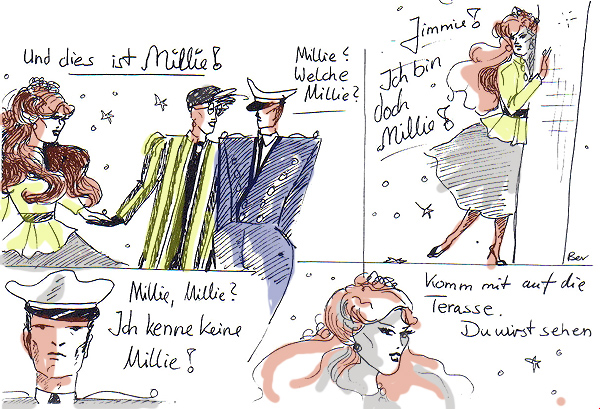 Und dies ist Millie!
Millie?
Welche
Millie?
Jimmie!
Ich bin
doch
Millie!
Bev
Millie, Millie?
Ich kenne keine
Millie!
Komm mit auf die
Terasse.
Du wirst sehen